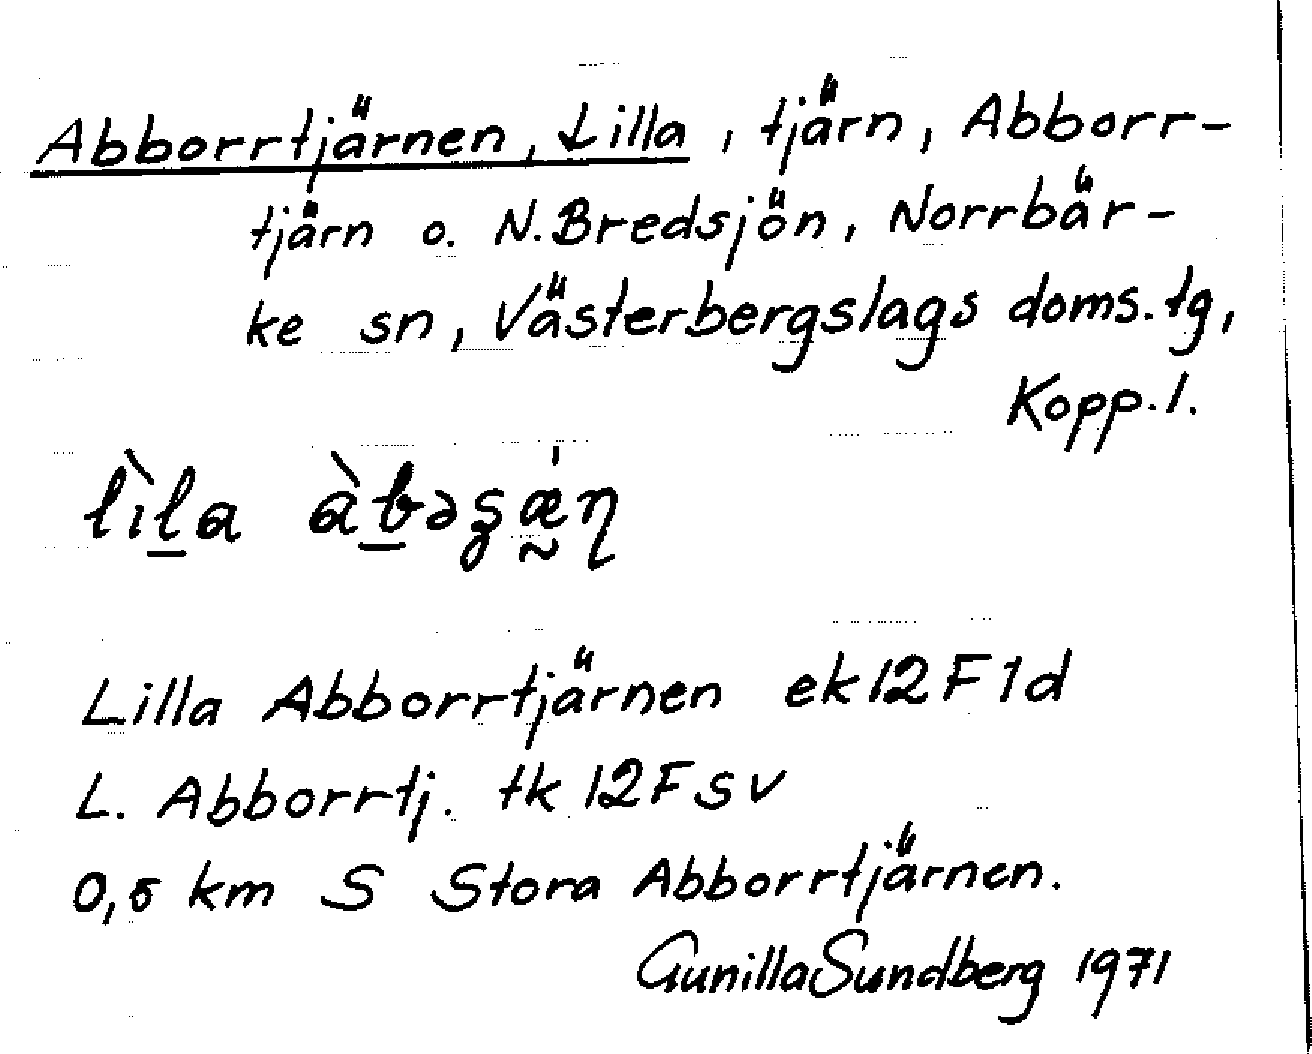 Abborrtjärnen, Lilla, tjärn, Abborr-
tjärn o. N. Bredsjön, Norrbär-
ke sn, Västerbergslags doms. tg,
Kopp. l.
lìl̲a àb̲əʂǽ̰ɳ
Lilla Abborrtjärnen ek 12 F 1d
L. Abborrtj. tk 12 F sv
0,5 km S Stora Abborrtjärnen.
Gunilla Sundberg 1971